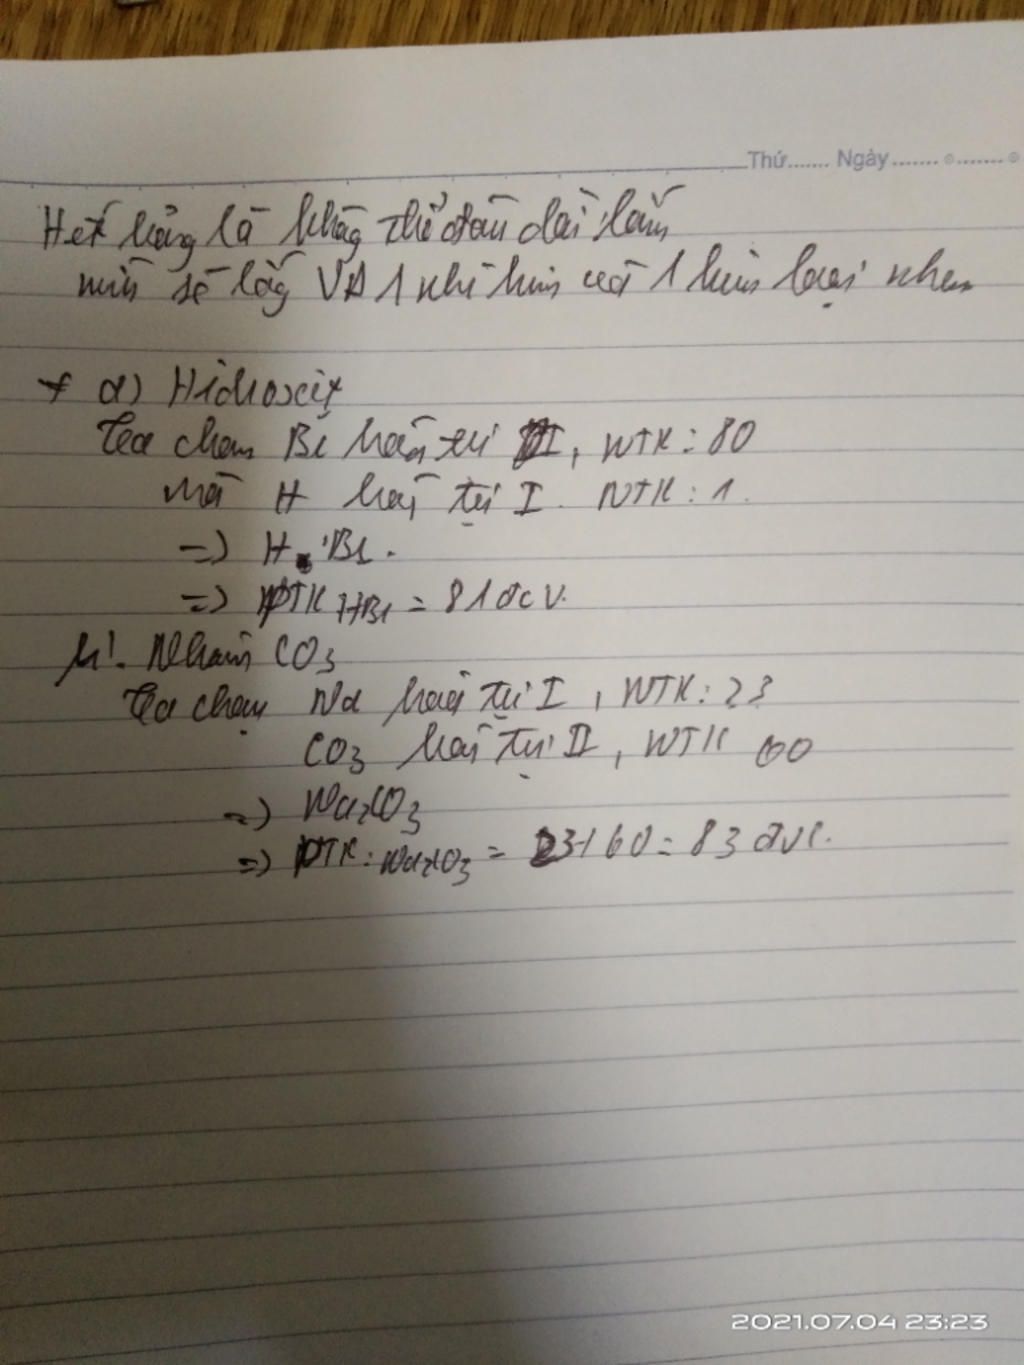 Thứ....... Ngày.......
là không thể dài lắm
mình sẽ lấy VD 1 phi kim và 1 kim loại nhen
a) Hidroxit
Ta chọn Br hoá trị I, NTK: 80
mà H hoá trị I. NTK: 1.
=) HBr.
=) PTK HBr = 81 đcv.
Nhóm CO3
Ta chọn Na hoá trị I, NTK: 23
CO3 hoá trị II, NTK 60
=) Na2CO3
=) PTK: Na2CO3 = 23+60 = 83 đvc.
2021.07.04 23:23